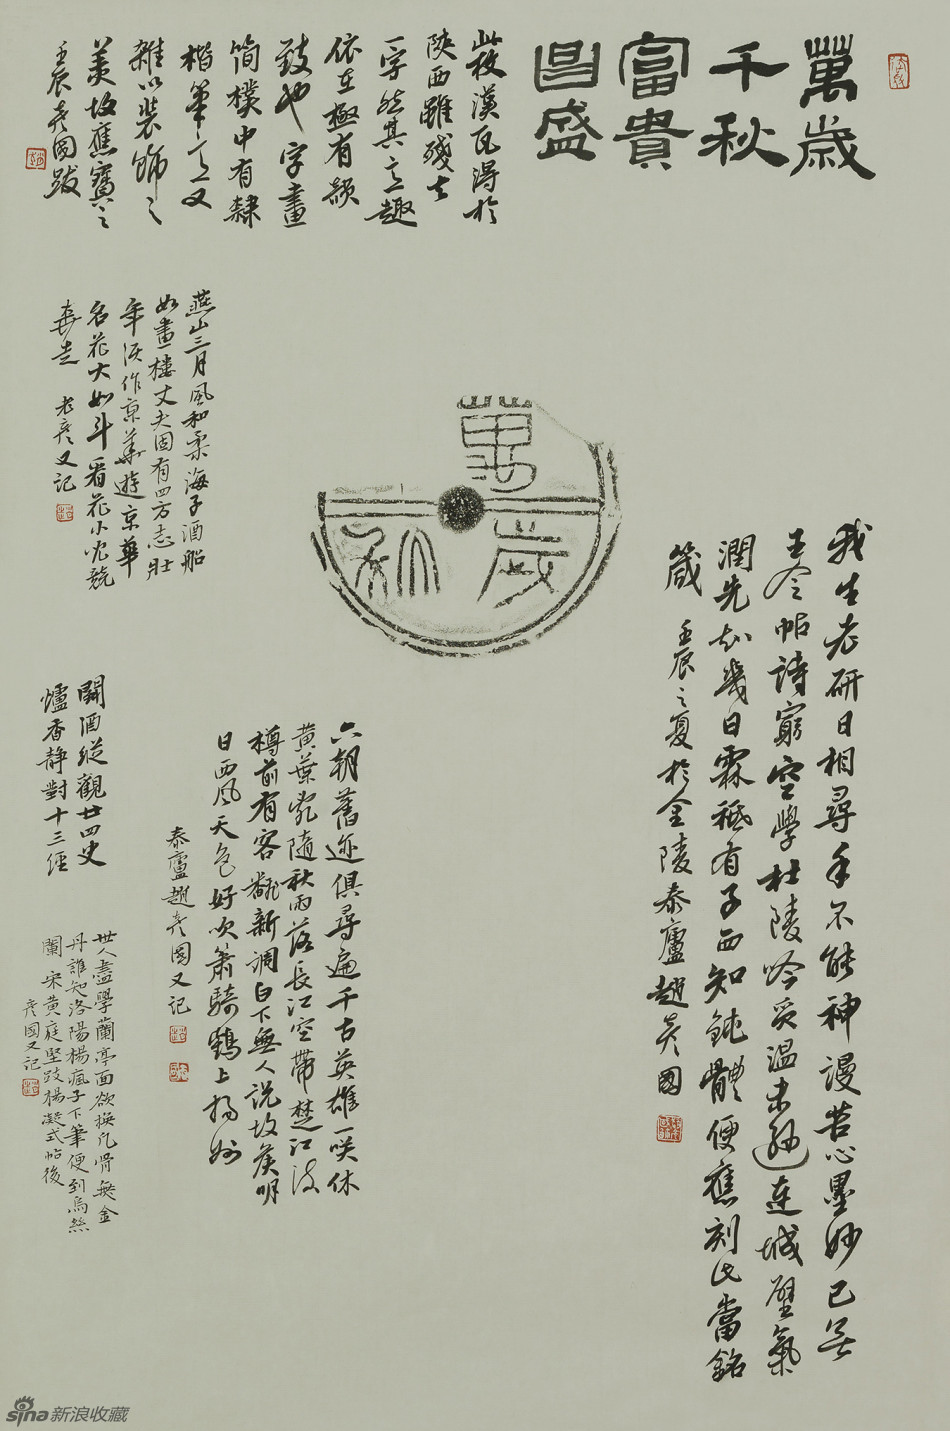 萬歲
千秋
富貴
昌盛
此莜漢瓦得於
陝西雖殘去
一字然其意趣
依在極有韻
致也字畫
簡樸中有隸
楷筆意又
雜以裝飾之
美故應寶之
壬辰彥國跋
萬歲
秋
燕山三月風和柔海子酒船
如畫樓丈夫固有四方志壯
年須作京華遊京華
名花大如斗看花小兒競
奔走 老彥又記
我生老研日相尋手不能神謾苦心墨妙已無
王令帖詩窮空學杜陵吟質溫未遜連城璧氣
潤先知幾日霖秪有子西知鈍體便應刻此當銘
箴 壬辰之夏於金陵泰廬趙彥國
六朝舊迹俱尋遍千古英雄一笑休
黃葉亂隨秋雨落長江空帶楚江流
樽前有客翻新調白下無人說故侯明
日西風天色好吹簫騎鶴上揚州
泰廬趙彥國又記
閒酒縱觀廿四史
爐香靜對十三經
世人盡學蘭亭面欲換凡骨無金
丹誰知洛陽楊瘋子下筆便到烏絲
闌 宋黃庭堅跋楊凝式帖後
彥國又記
sina新浪收藏